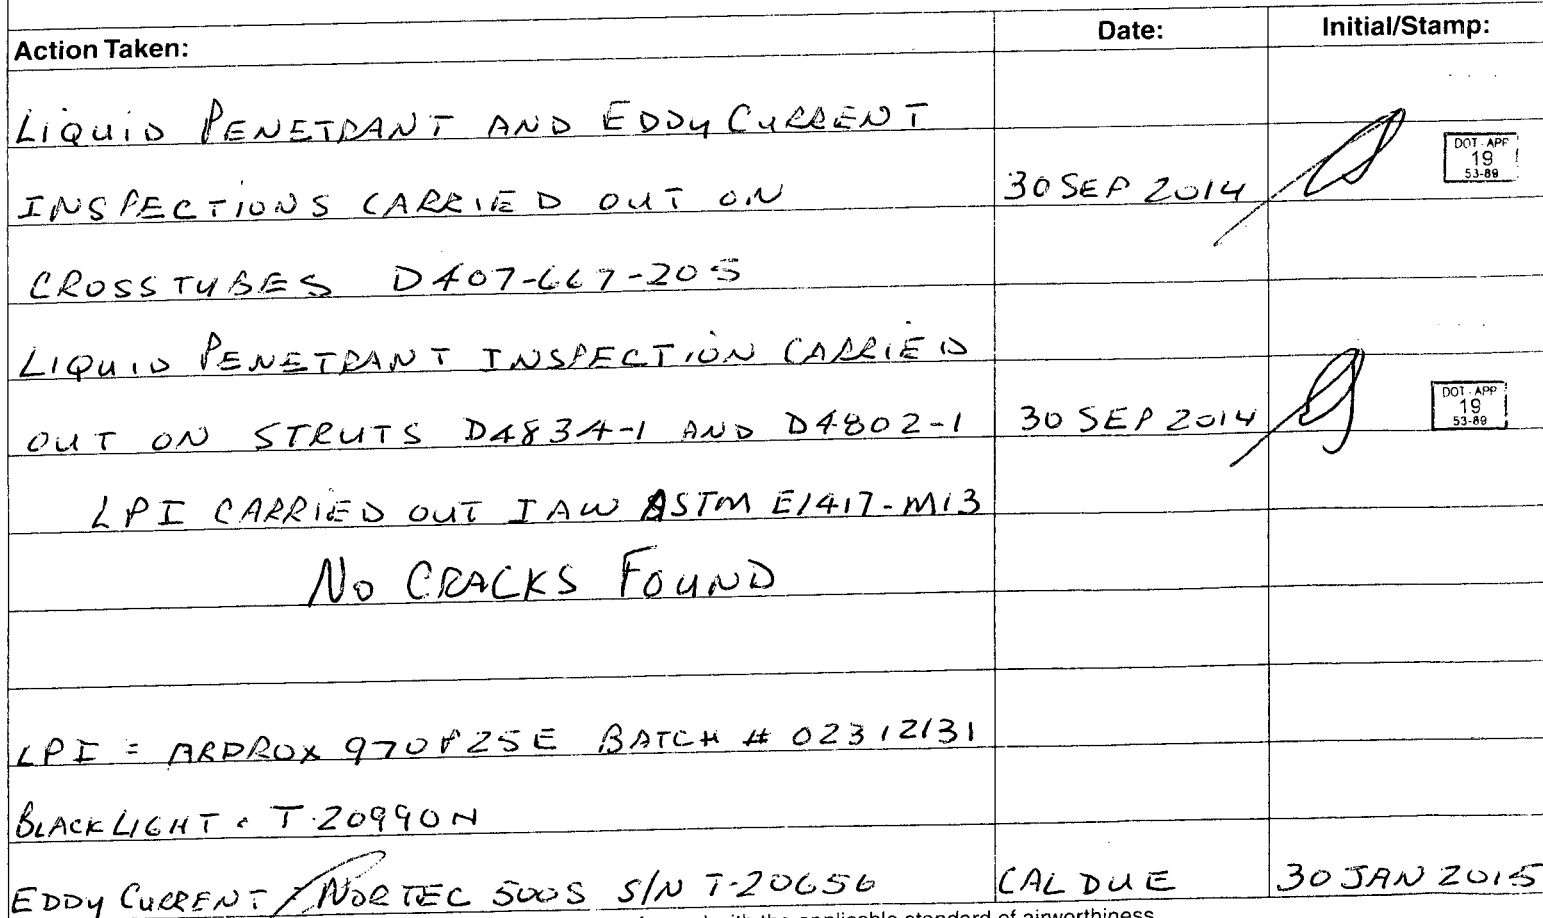 Action Taken: Date: Initial/Stamp:
LIQUID PENETRANT AND EDDY CURRENT
DOT - APP
19
53-89
INSPECTIONS CARRIED OUT ON 30 SEP 2014
CROSSTUBES D407-667-205
LIQUID PENETRANT INSPECTION CARRIED
DOT - APP
19
53-89
OUT ON STRUTS D4834-1 AND D4802-1 30 SEP 2014
LPI CARRIED OUT IAW ASTM E1417-M13
NO CRACKS FOUND
LPI = ARDROX 970P25E BATCH # 02312131
BLACK LIGHT : T-20990N
EDDY CURRENT / NORTEC 500S S/N T-20656 CAL DUE 30 JAN 2015
with the applicable standard of airworthiness